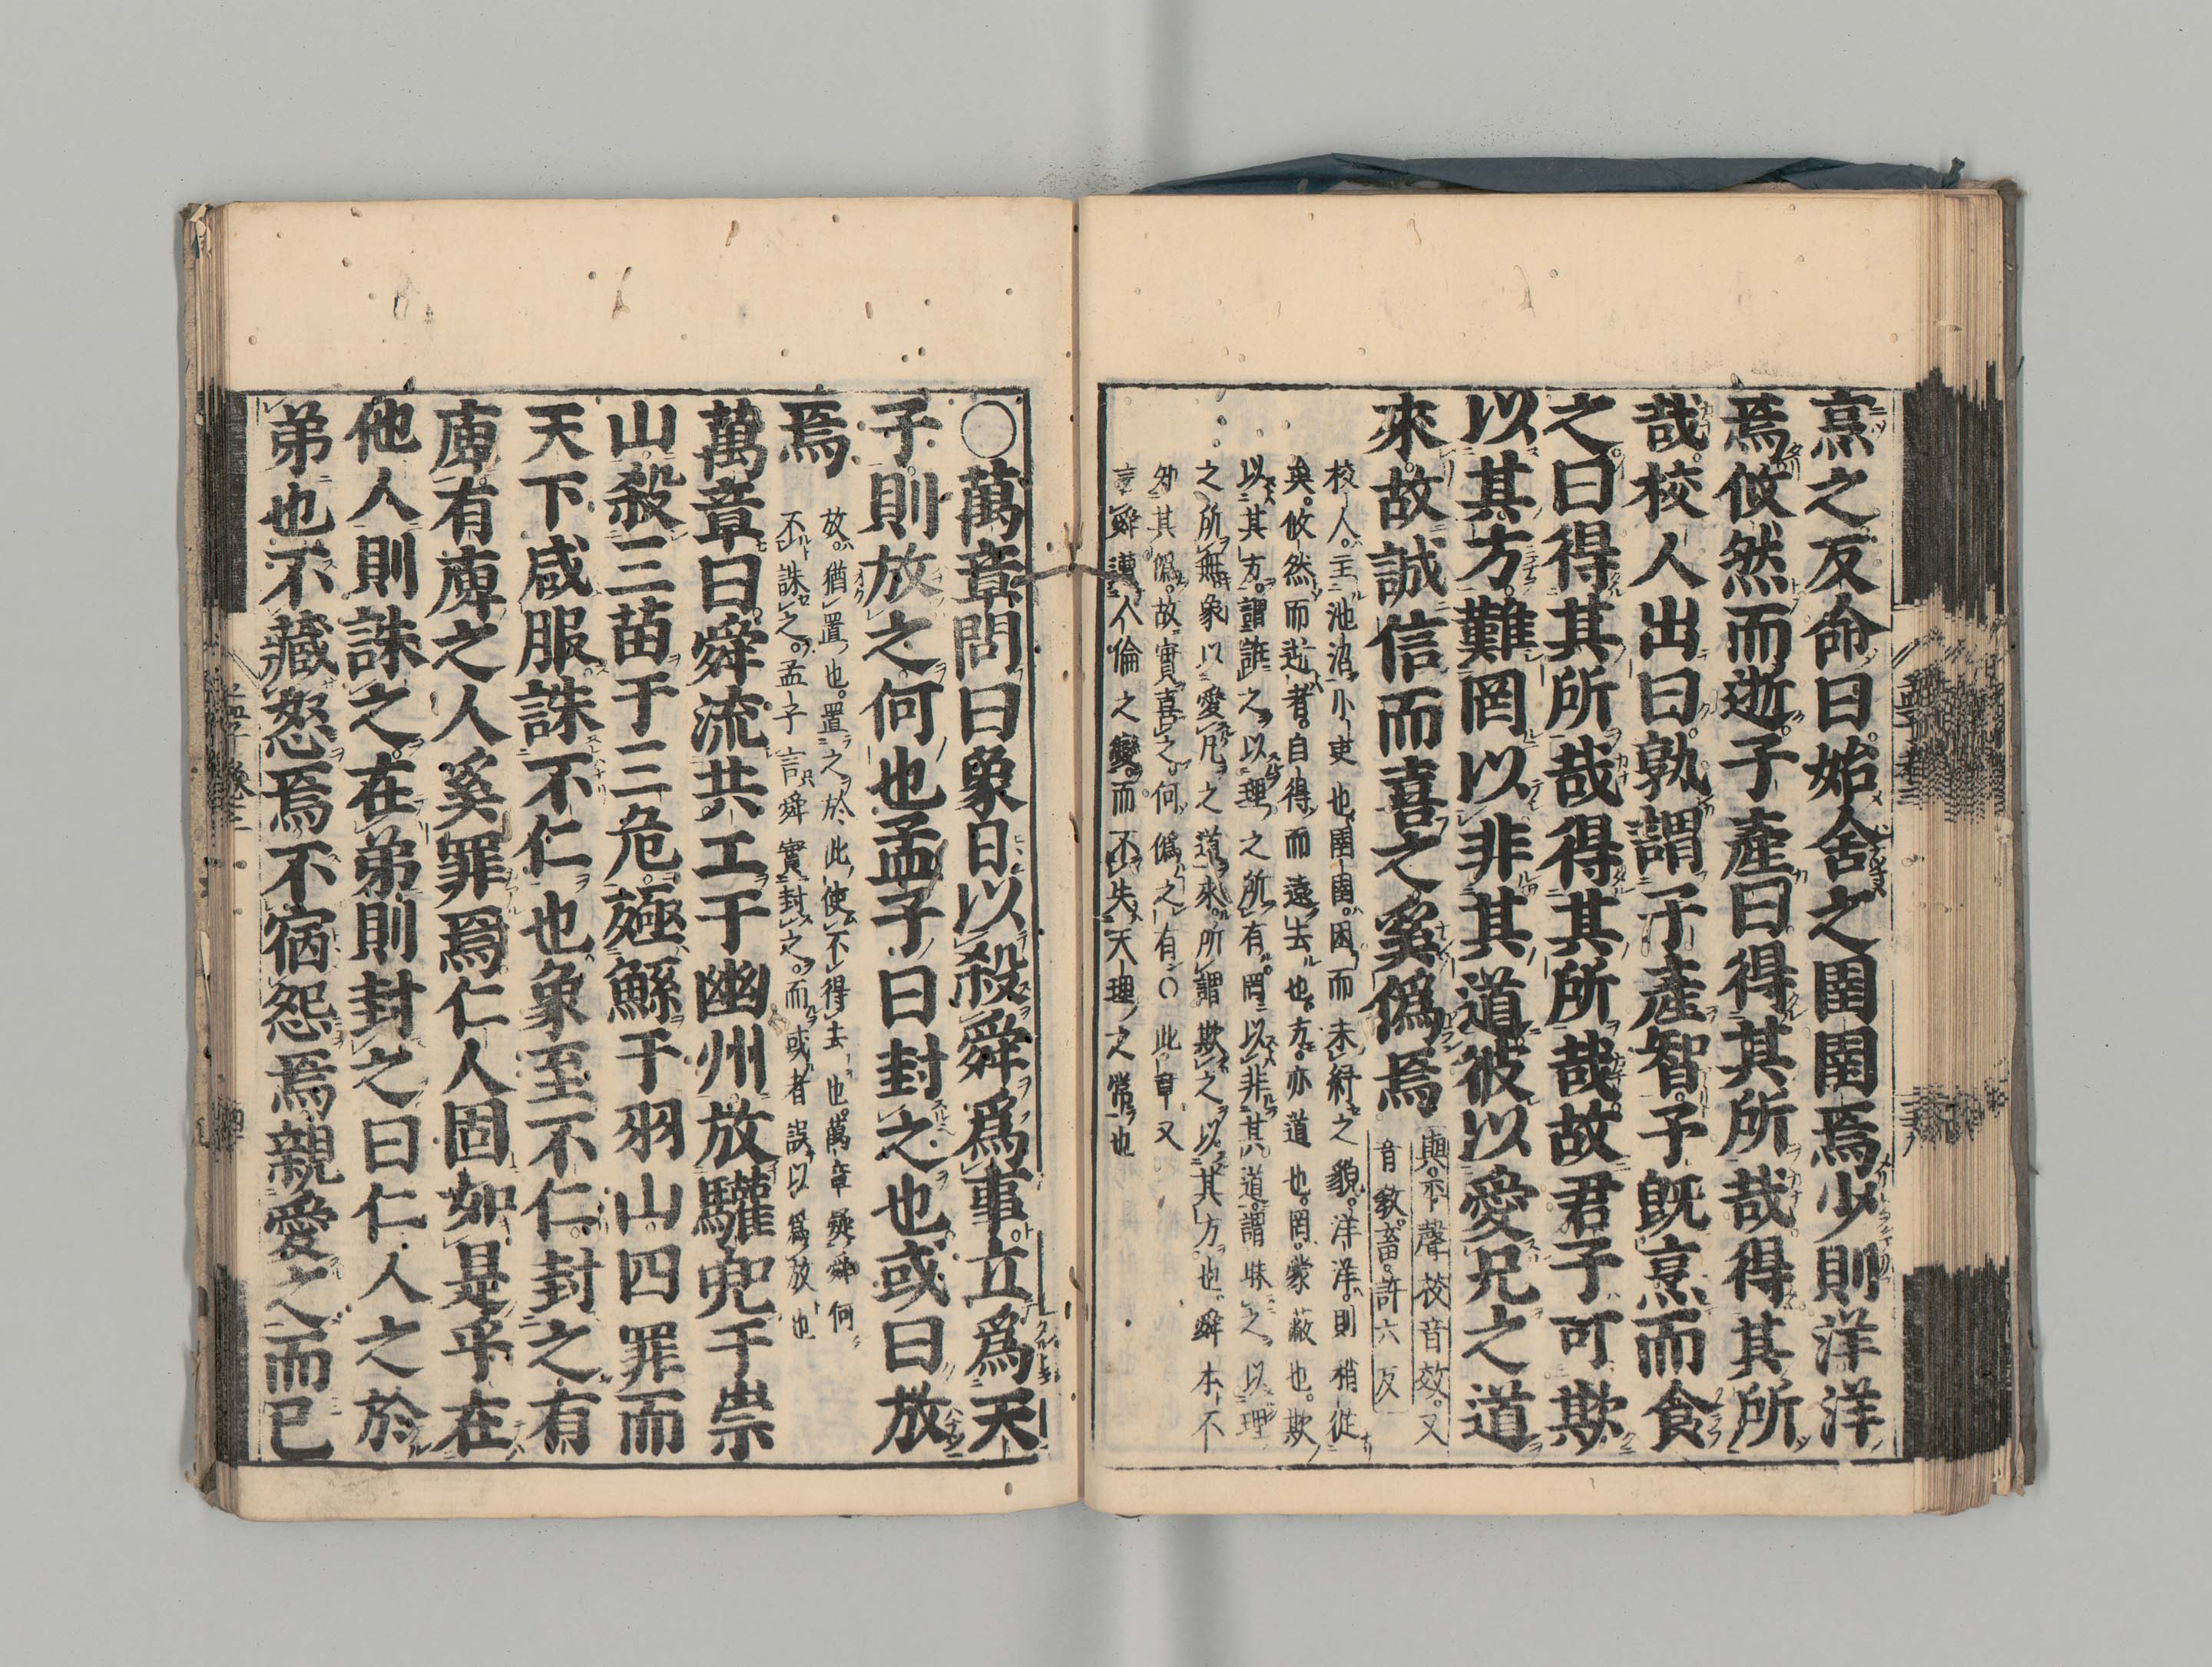 烹之反命曰始舍之圉圉焉少則洋洋
焉攸然而逝子產曰得其所哉得其所
哉校人出曰孰謂子產智予既烹而食
之曰得其所哉得其所哉故君子可欺
以其方難罔以非其道彼以愛兄之道
來故誠信而喜之奚僞焉
與平聲校音效又
音敎畜許六反
校人主池沼小吏也圉圉困而未紓之貌洋洋則稍從
矣攸然而逝者自得而遠去也方亦道也罔蒙蔽也欺
以其方謂誑之以理之所有罔以非其道謂昧之以理
之所無象以愛兄之道來所謂欺之以其方也舜本不
知其僞故實喜之何僞之有〇此章又
言舜遭人倫之變而不失天理之常也
〇萬章問曰象日以殺舜爲事立爲天
子則放之何也孟子曰封之也或曰放
焉
放猶置也置之於此使不得去也萬章疑舜何
不誅之孟子言舜實封之而或者誤以爲放也
萬章曰舜流共工于幽州放驩兜于崇
山殺三苗于三危殛鯀于羽山四罪而
天下咸服誅不仁也象至不仁封之有
庳有庳之人奚罪焉仁人固如是乎在
他人則誅之在弟則封之曰仁人之於
弟也不藏怒焉不宿怨焉親愛之而已
孟子卷三
孟子卷三